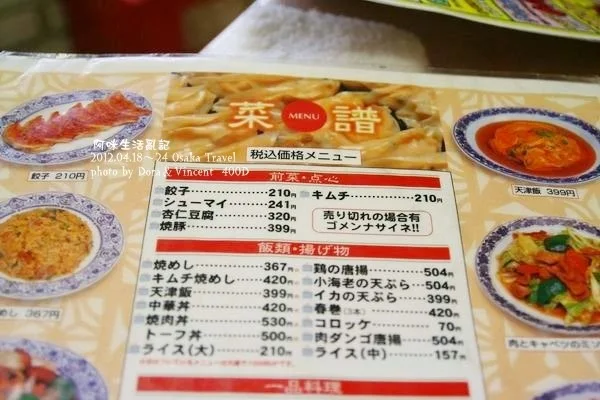 菜 MENU 譜
阿味生活亂記
2012.04.18~24 Osaka Travel
photo by Dora & Vincent 400D
税込価格メニュー
餃子 210円
天津飯 399円
前菜・点心
餃子 210円
シューマイ 241円
杏仁豆腐 320円
焼豚 399円
キムチ 210円
売り切れの場合有
ゴメンナサイネ!!
飯類・揚げ物
焼めし 367円
キムチ焼めし 420円
天津飯 399円
中華丼 420円
焼肉丼 530円
トーフ丼 500円
ライス(大) 210円
鶏の唐揚 504円
小海老の天ぷら 504円
イカの天ぷら 399円
春巻(3本) 420円
コロッケ 70円
肉ダンゴ唐揚 504円
ライス(中) 157円
めし 367円
肉とキャベツのミソ
一品料理